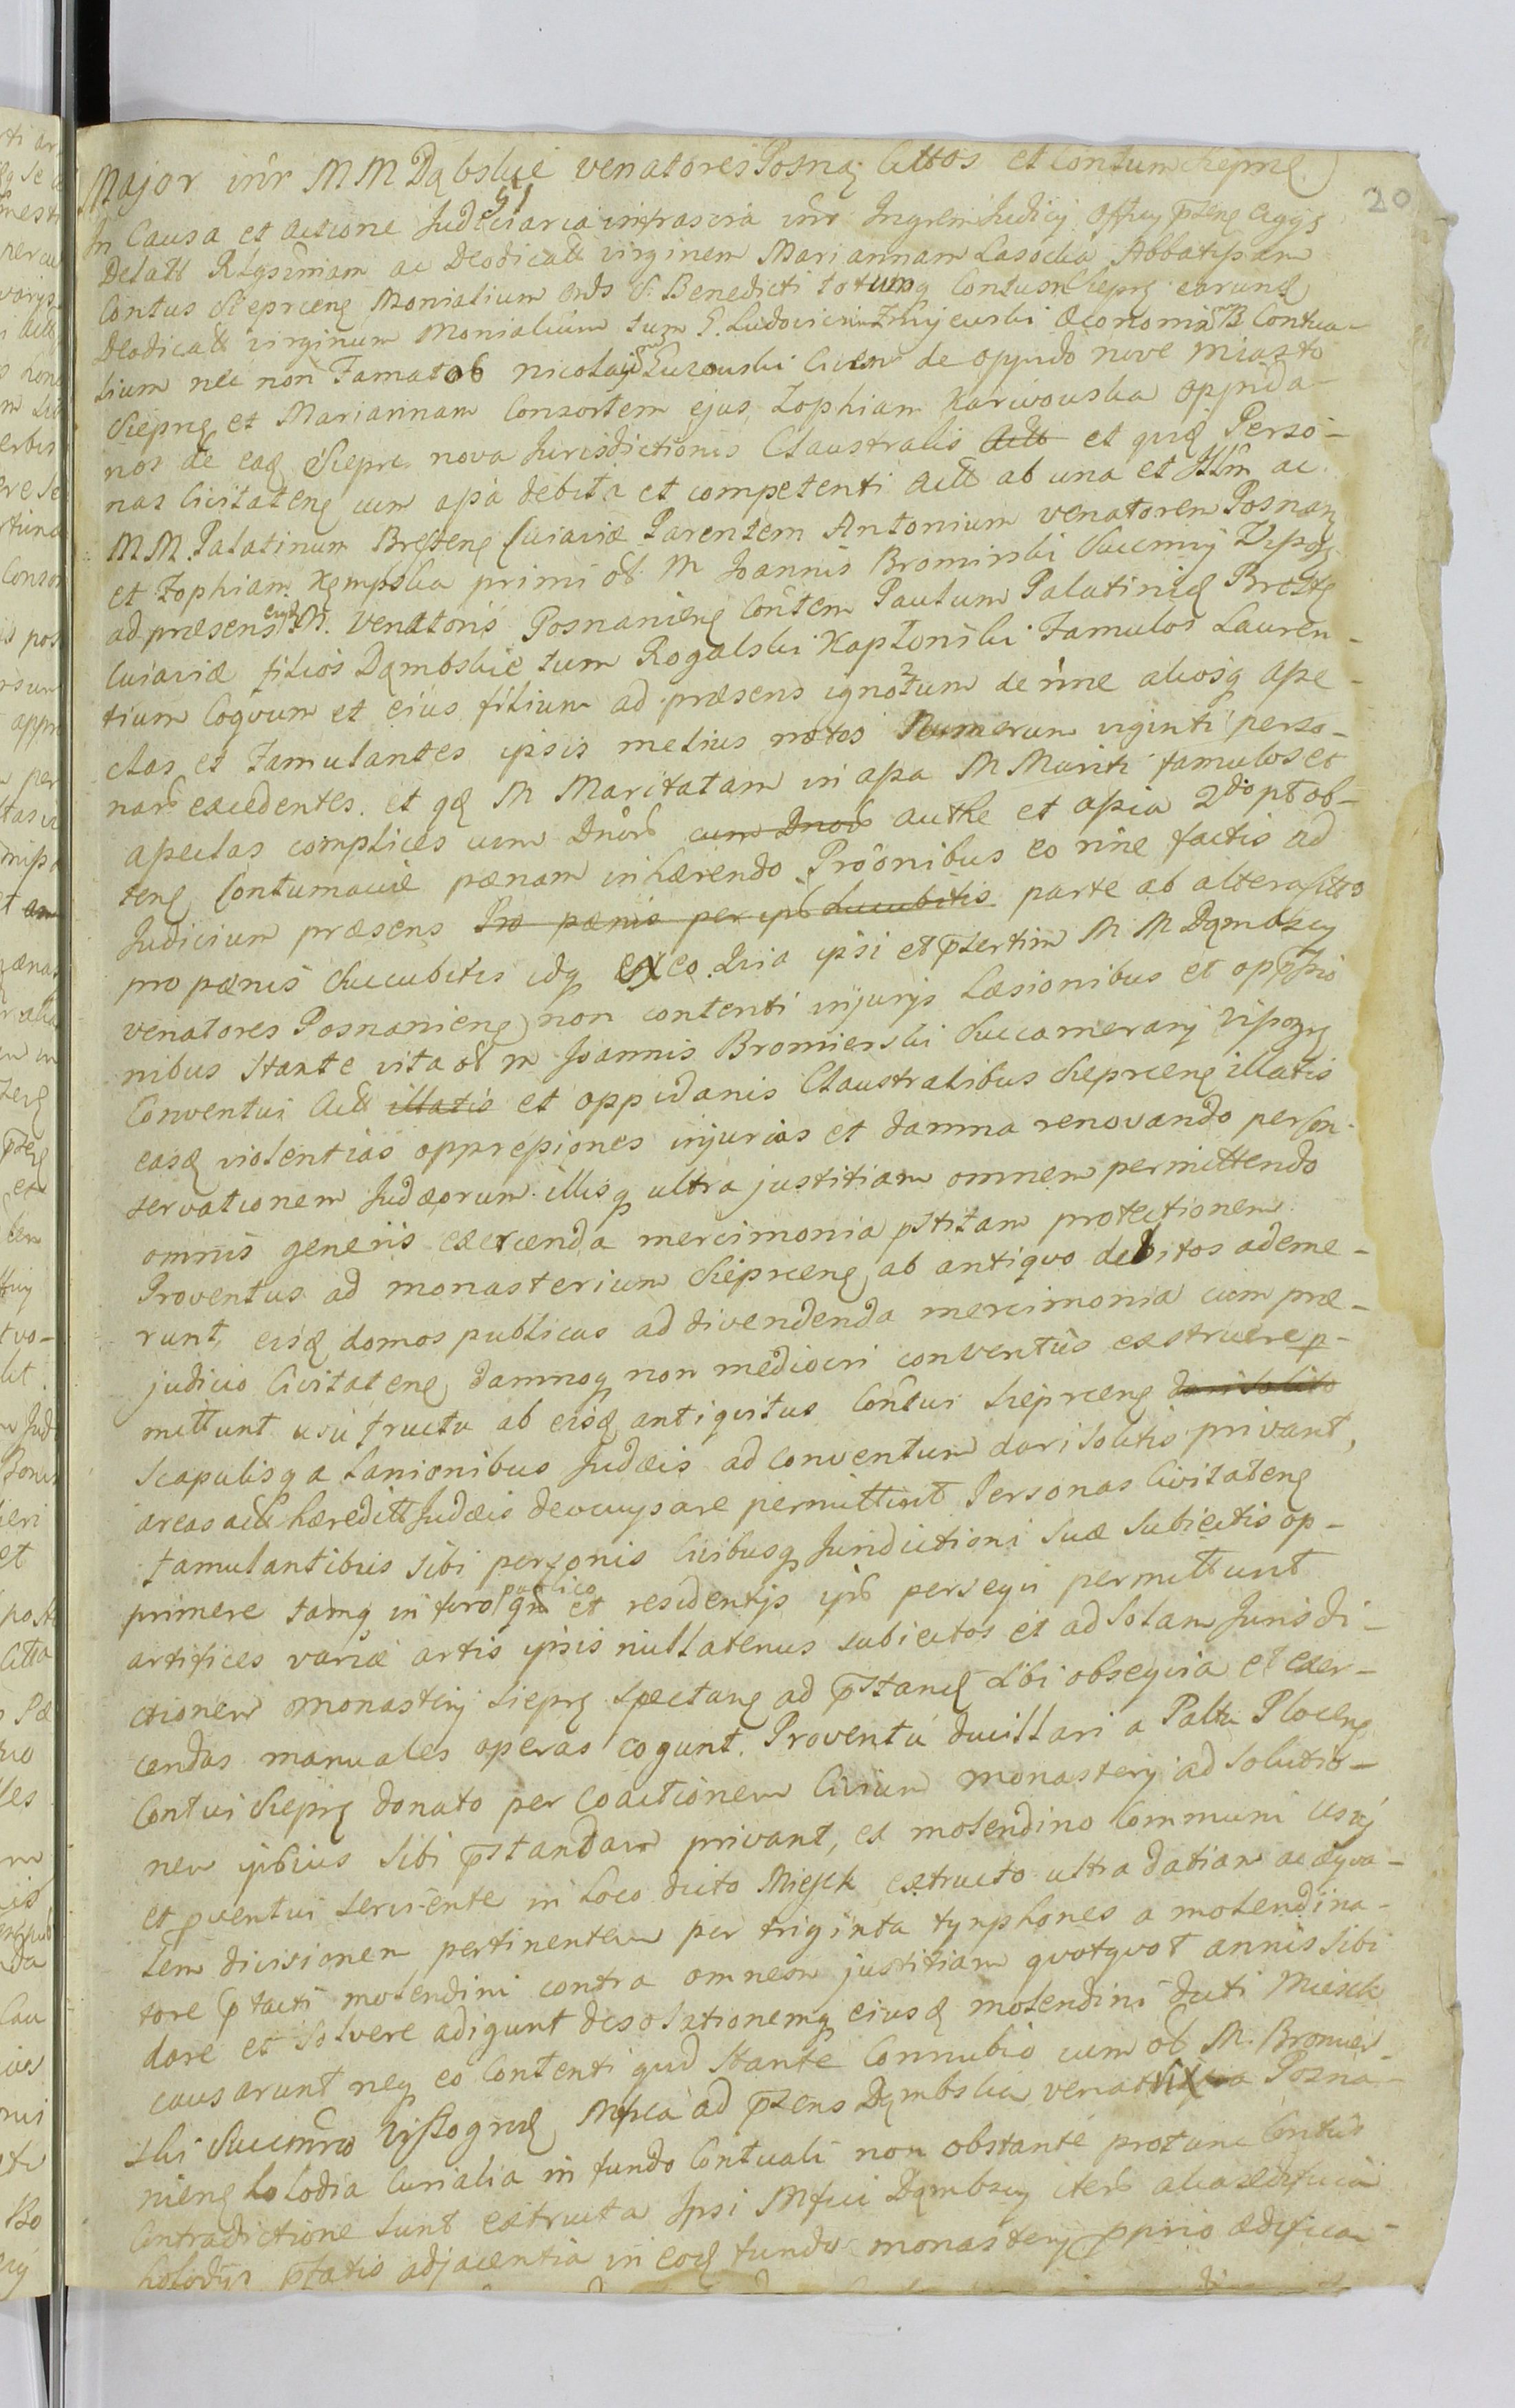 20
Major inr MM Dąbskie venatores Posnaę Cittos et Contum Siepreę
In Causa et actione Judiciaria infrascrta inr Ingrem Judicij Officij pnteę Caggę
Delatt Rlgsimam ac Deodicatt virginem Mariannam Lasocka Abbatissam
Contus Siepreceng Monialium Ords S. Benedicti totumq Contum Siepreę earundę
Deodicatt virginum Monialium tum G. Ludovicum Zmijewski Œconomum B Contua-
lium nec non Famatos Nicolaum Guzowski Civem de oppido nove miasto
Siepreę et Mariannam Consortem ejus, Zophiam Karwowska oppida-
nos de eadę Sieprc nova Jurisdictionis Claustralis Actt et quę Perso-
nas Civitateng cum apa debita et competenti actt ab una et Illm ac
MM. Palatinum Bresteng Cuiaviæ Parentem Antonium venatorem Posnaę
et Zophiam Kempska primi ol M Joannis Bromirski Succmrij Vyszog
ad præsens eiusdę M. Venatoris Posnanieng Contem Paulum Palatinidę Brestę
Cuiaviæ filios Dąmbskie tum Rogalski Kapłonski Famulos Lauren-
tium Coqvum et eius filium ad præsens ignotum de nne aliosq aspe-
ctas et Famulantes ipsis melius notos Numerum viginti perso-
nars excedentes. et qę M Maritatam in aspa M Mariti famulos et
aspectas complices cum Dnors cum Dnors authe et apia 2do ptob-
teng Contumaciæ pænam inhærendo Proonibus eo nne factis ad
Judicium præsens Pro pænis per ips succubitis parte ab altera Cittos
pro pænis succubitis idq ex eo Quia ipsi et pntertim M M Dąmbscy
venatores Posnanieng non contenti injurijs Læsionibus et oppsio
nibus stante vita ol M Joannis Bromierski Succamerarij Viszogę
Conventui Actt illatis et oppidanis Claustralibus Siepreceng illatis
easdę violentias oppressiones injurias et damna renovando per con-
servationem Judæorum illisq ultra justitiam omnem permittendo
omnis generis exercenda mercimonia pstitam protectionem
Proventus ad monasterium Siepreceng ab antiquo debitos ademe-
runt, eisdę domos publicas ad divendenda mercimonia cum præ-
judicio Civitateng damnoq non mediocri conventus exstruere p-
mittunt usu fructu ab eisdę antiqvitus Contui Siepreceng dari solito
Scapulisq a Lanionibus Judæis ad Conventum dari solitis privant,
areas actt hæreditt Judæis deoccupare permittunt Personas Civitateng
Famulantibus sibi personis Civibusq Juridictioni suæ subiectis op-
primere tamq in foro publico qm et residentijs ips persequi permittunt
artifices variæ artis ipsis nullatenus subiectos et ad solam Jurisdi-
ctionem Monasterij Siepreę spectang ad pstandę sibi obseqvia et exer-
cendas manuales operas cogunt. Proventu ducillari a Palto Ploceng
Contui Siepreę donato per coactionem Civium monasterij ad solutio-
nem ipsius sibi pstandam privant, et molendino communi usui
et pventui serviente in Loco dicto Miesek extructo ultra datiam ac æqva-
lem divisionem pertinentem per triginta tynphones a molendina-
tore ptacti molendini contra omnem justitiam quotqvot annis sibi
dare et solvere adigunt desolationemq eiusdę molendini dicti Miesek
causarunt neq eo Contenti quod stante Connubio cum ol M. Bromier-
ski Succmrio Viszogrodę Mfica ad pntens Dąmbska venatrix Posna-
nieng holodia Curialia in fundo Contuali non obstante protunc Contus
Contradictione sunt extructa Ipsi Mfici Dąmbscy iters alia ædificia
holodijs ptatis adjacentia in eodę fundo monasterij pprio ædifica-